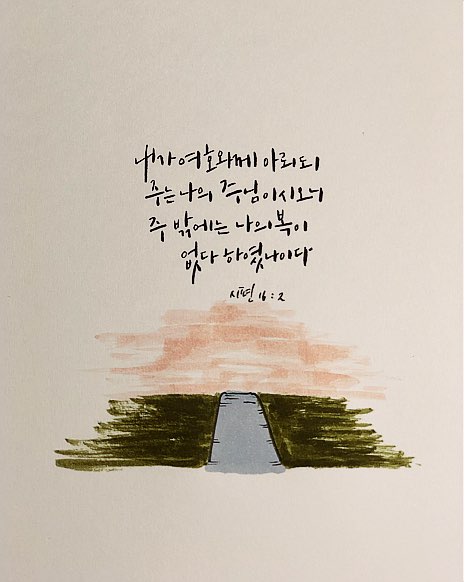 내가 여호와께 아뢰되
주는 나의 주님이시오니
주 밖에는 나의 복이
없다 하였나이다
시편 16:2